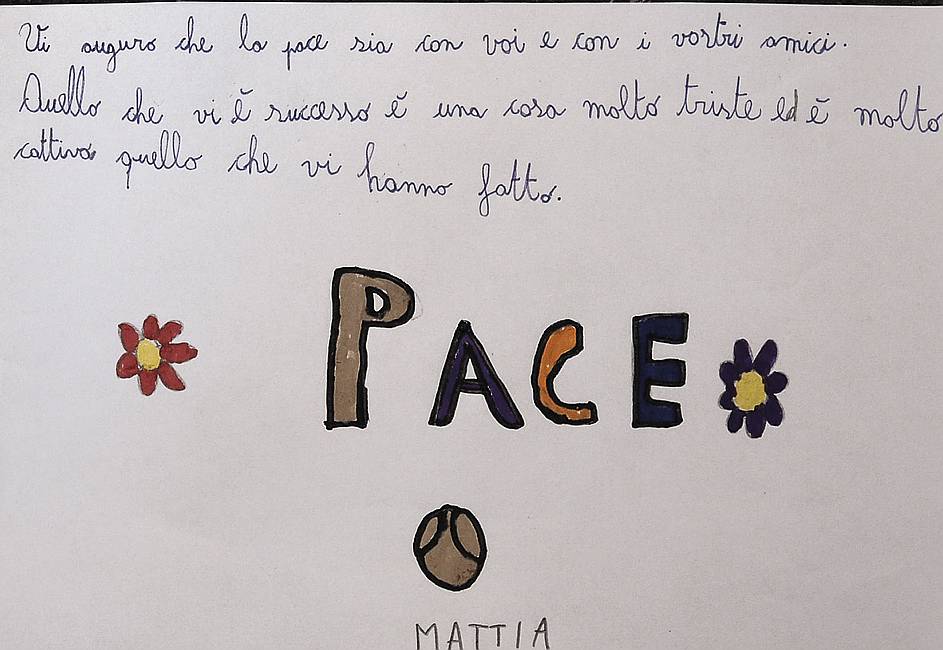 Vi auguro che la pace sia con voi e con i vostri amici.
Quello che vi è successo è una cosa molto triste ed è molto
cattivo quello che vi hanno fatto.
PACE
MATTIA